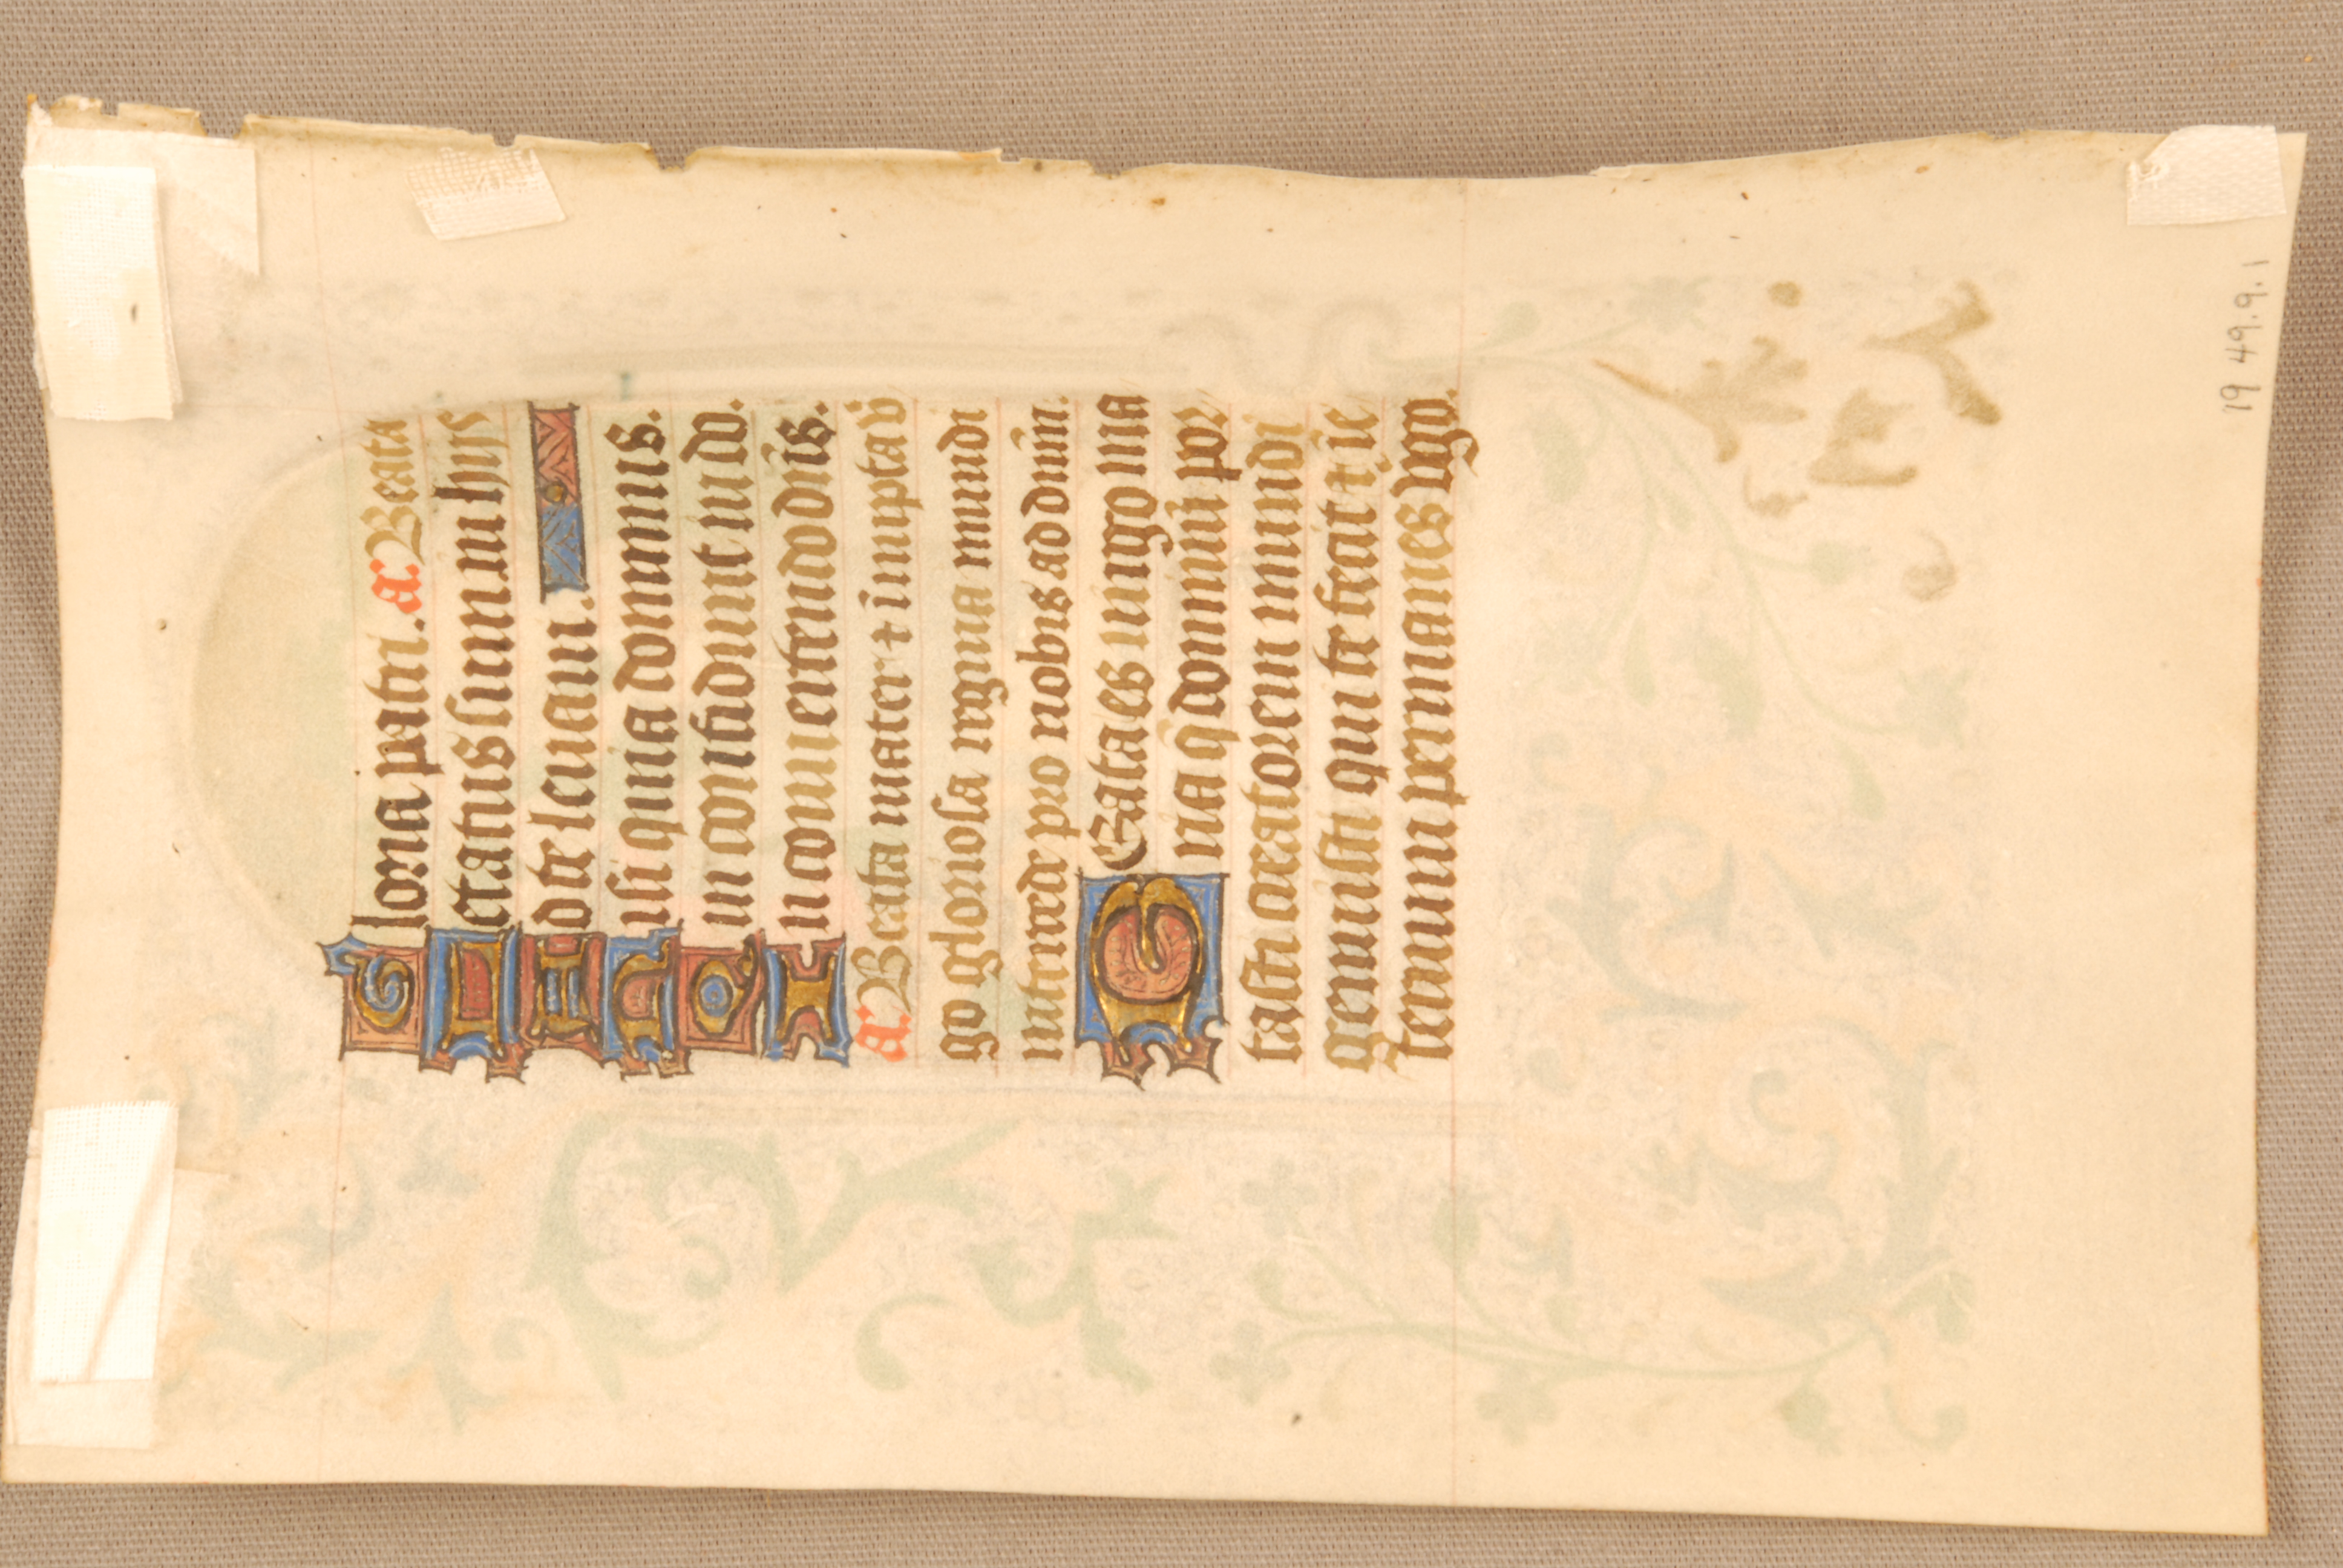 Gloria patri. a. Beata
Letatus sum in hijs
Ad te leuaui.
Nisi quia dominus.
Qui confidunt in do.
In conuertendo dñs.
a. Beata mater ⁊ innupta v̄
go gloriosa regina mundi
intercede pro nobis ad dnm̄.
Beata es uirgo ma
ria q̄ dominū por
tasti creatorem mundi
genuisti qui te fecit ⁊ ī e
ternum permanes v̄go.
19 49.9.1